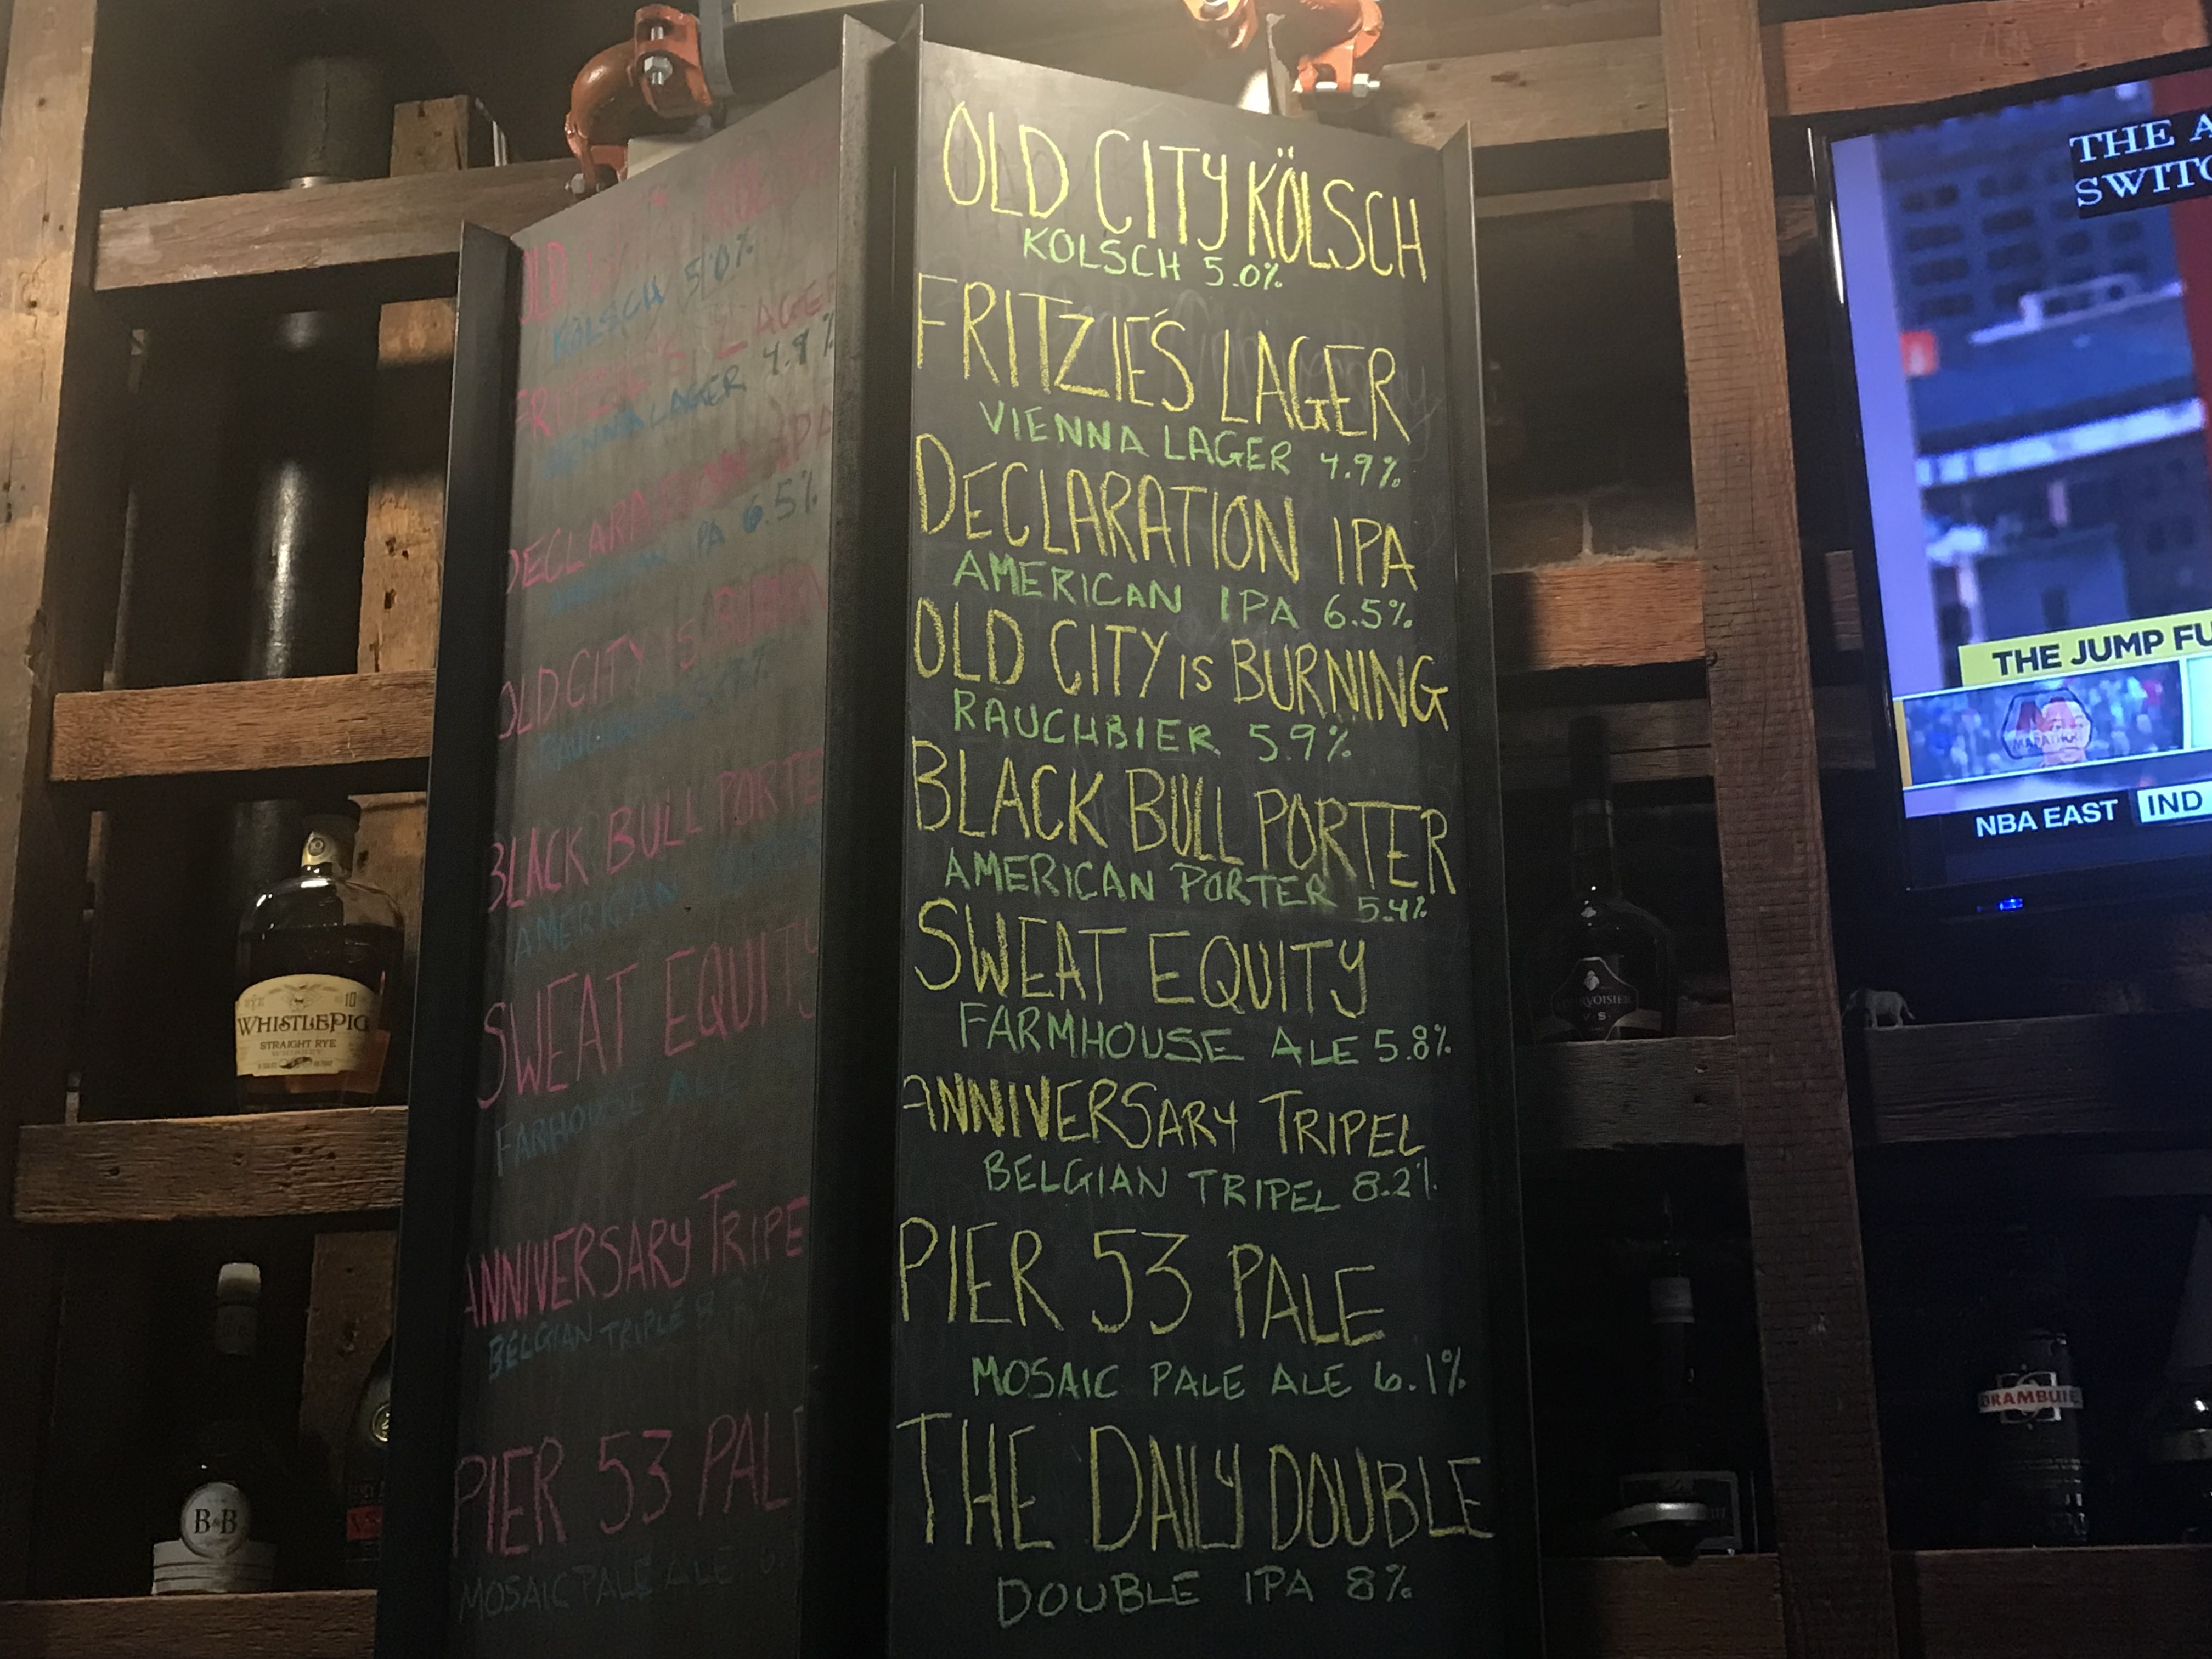 OLD
KOLSCH 5.0%
LAGER
VIENNA LAGER 4.9%
DECLARATION IPA
IPA 6.5%
OLD CITY IS
BLACK BULL PORTE
AMERICAN
SWEAT EQUITY
FARHOUSE ALE
ANNIVERSARY TRIPE
BELGIAN TRIPLE
PIER 53 PAL
MOSAIC PALE ALE
OLD CITY KÖLSCH
KOLSCH 5.0%
FRITZIE'S LAGER
VIENNA LAGER 4.9%
DECLARATION IPA
AMERICAN IPA 6.5%
OLD CITY IS BURNING
RAUCHBIER 5.9%
BLACK BULL PORTER
AMERICAN PORTER 5.4%
SWEAT EQUITY
FARMHOUSE ALE 5.8%
ANNIVERSARY TRIPEL
BELGIAN TRIPEL 8.2%
PIER 53 PALE
MOSAIC PALE ALE 6.1%
THE DAILY DOUBLE
DOUBLE IPA 8%
THE A
SWITC
THE JUMP FU
MARATHON
NBA EAST IND
10
WHISTLEPIG
STRAIGHT RYE
WHISKEY
B&B
COURVOISIER
V.S
DRAMBUIE